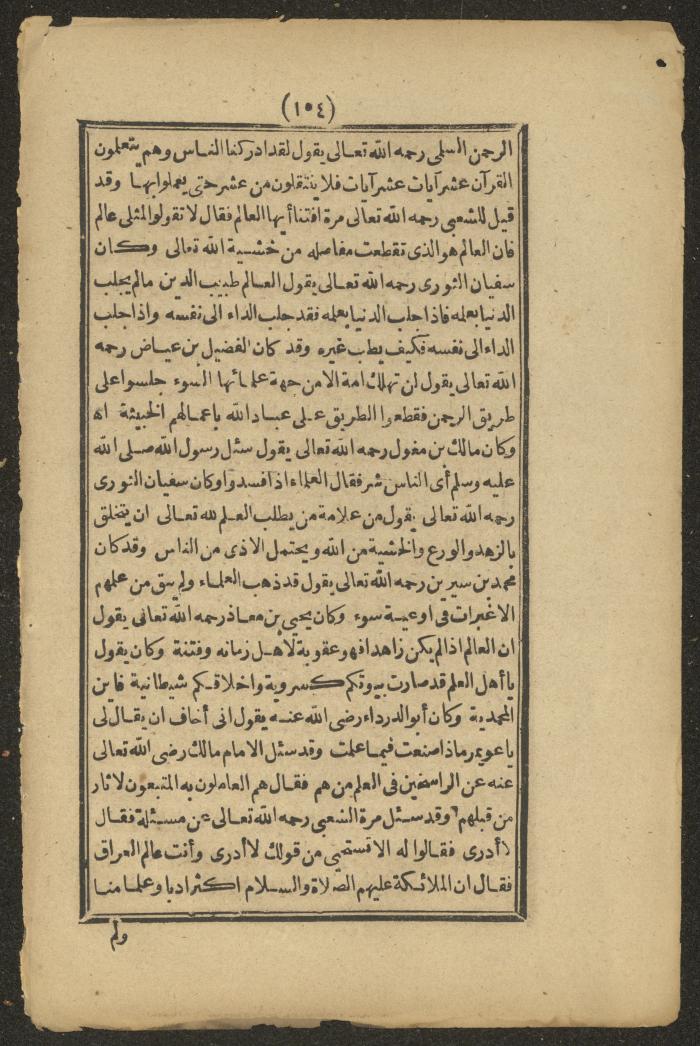 (١٥٤)
الرحمن السلمى رحمه الله تعالى يقول لقد ادركنا الناس وهم يتعلمون
القرآن عشر آيات عشر آيات فلا ينتقلون من عشر حتى يعملوا بها وقد
قيل للشعبى رحمه الله تعالى مرة افتنا أيها العالم فقال لا تقولوا لمثلى عالم
فان العالم هو الذى تقطعت مفاصله من خشية الله تعالى وكان
سفيان الثورى رحمه الله تعالى يقول العالم طبيب الدين مالم يجلب
الدنيا بعلمه فاذا جلب الدنيا بعلمه فقد جلب الداء الى نفسه واذا جلب
الداء الى نفسه فكيف يطب غيره وقد كان الفضيل بن عياض رحمه
الله تعالى يقول لن تهلك امة الا من جهة علمائها السوء جلسوا على
طريق الرحمن فقطعوا الطريق على عباد الله باعمالهم الخبيثة اه
وكان مالك بن مغول رحمه الله تعالى يقول سئل رسول الله صلى الله
عليه وسلم أى الناس شر فقال العلماء اذا فسدوا وكان سفيان الثورى
رحمه الله تعالى يقول من علامة من يطلب العلم لله تعالى ان يتخلق
بالزهد والورع والخشية من الله ويحتمل الاذى من الناس وقد كان
محمد بن سيرين رحمه الله تعالى يقول قد ذهب العلماء ولم يبق من علمهم
الا غبرات فى اوعية سوء وكان يحيى بن معاذ رحمه الله تعالى يقول
ان العالم اذا لم يكن زاهدا فهو عقوبة لأهل زمانه وفتنة وكان يقول
يا أهل العلم قد صارت بيوتكم كسروية واخلاقكم شيطانية فاين
المحمدية وكان أبو الدرداء رضى الله عنه يقول انى أخاف ان يقال لى
يا عويمر ماذا صنعت فيما علمت وقد سئل الامام مالك رضى الله تعالى
عنه عن الراسخين فى العلم من هم فقال هم العاملون به المتبعون لآثار
من قبلهم وقد سئل مرة الشعبى رحمه الله تعالى عن مسئلة فقال
لا أدرى فقالوا له الا تستحيى من قولك لا أدرى وأنت عالم العراق
فقال ان الملائكة عليهم الصلاة والسلام اكثر ادبا وعلما منا
ولم